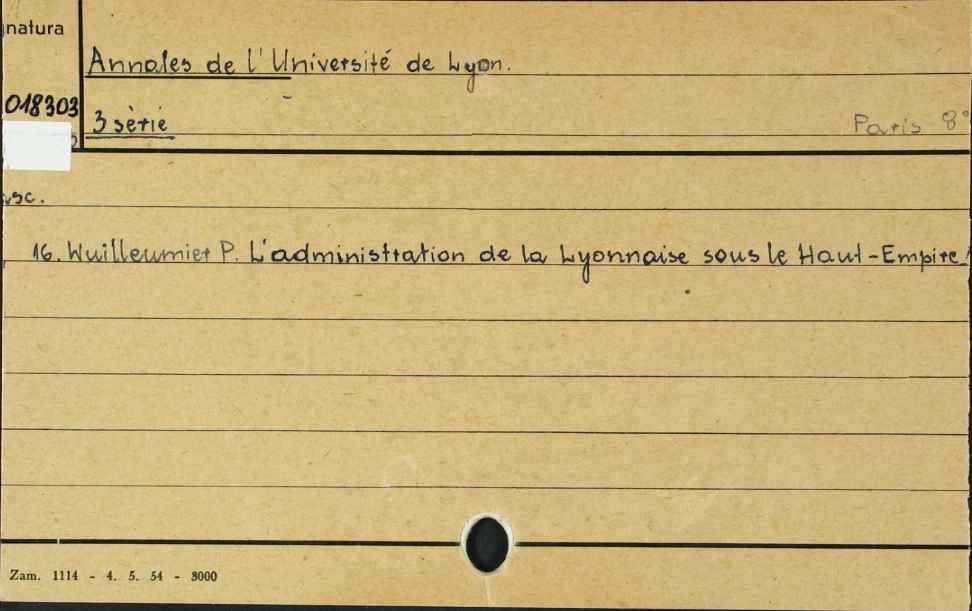 natura
Annales de l'Université de Lyon.
018303
3 sèrie Paris 8°
asc.
16. Wuilleumier P. L'administration de la Lyonnaise sous le Haut-Empire.
Zam. 1114 - 4. 5. 54 - 3000